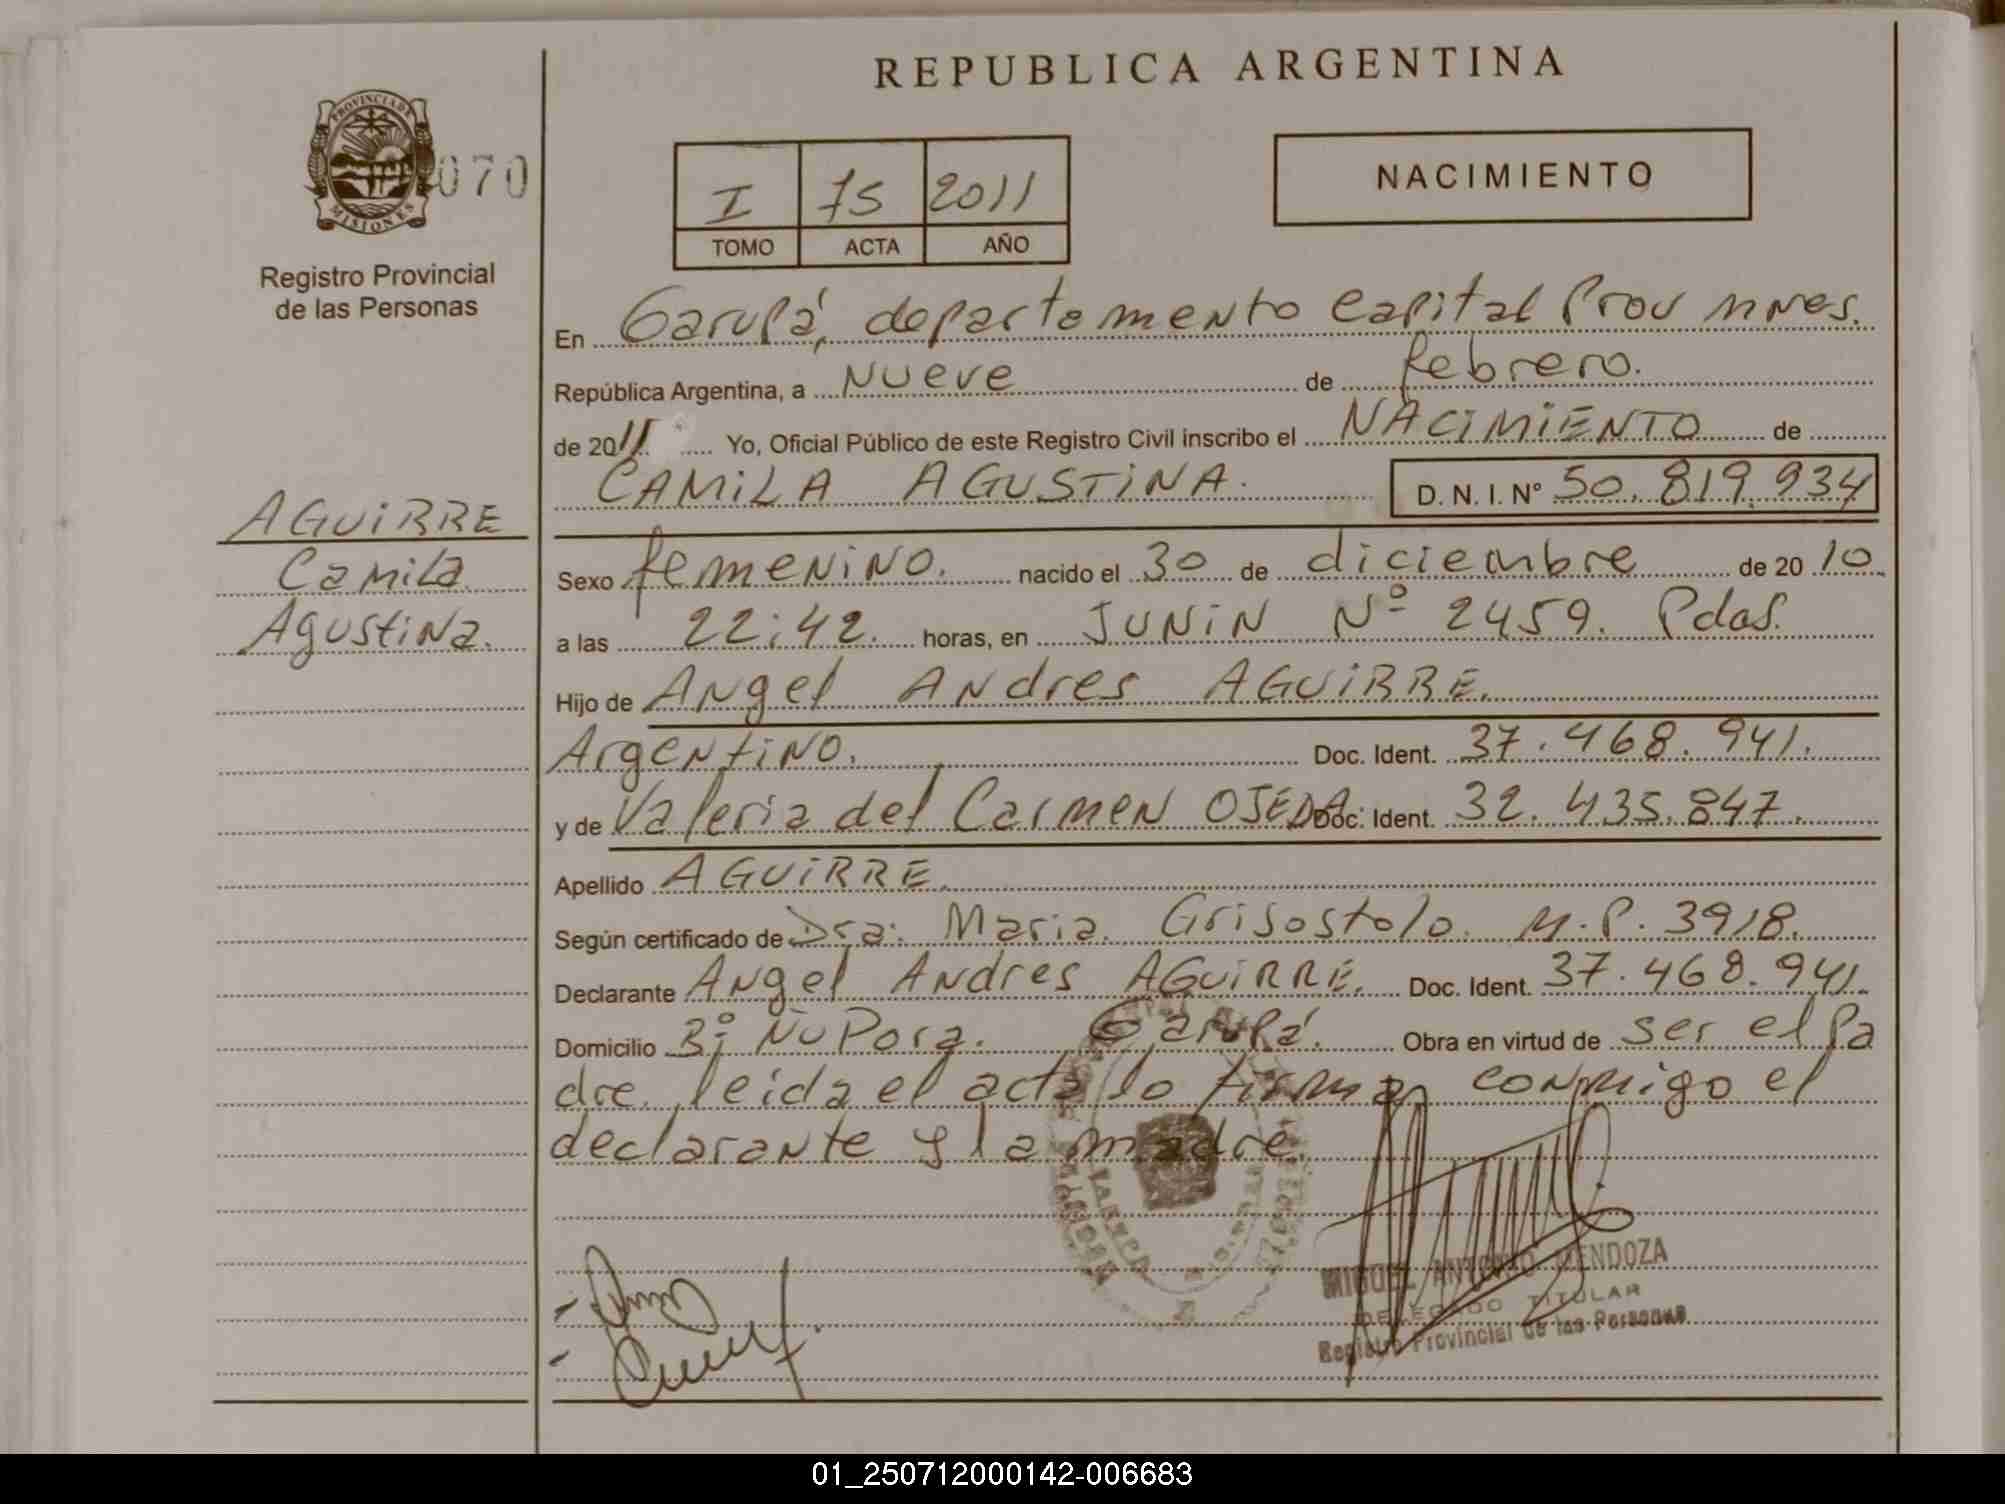 REPUBLICA ARGENTINA
PROVINCIA DE
MISIONES
070
Registro Provincial
de las Personas
I 75 2011
TOMO ACTA AÑO
NACIMIENTO
En Garupá, departamento Capital Prov Mnes.
República Argentina, a Nueve de febrero.
de 2011 Yo, Oficial Público de este Registro Civil inscribo el NACIMIENTO de
CAMILA AGUSTINA. D. N. I. Nº 50.819.934
AGUIRRE
Camila
Agustina.
Sexo femenino. nacido el 30 de diciembre de 2010
a las 22:42. horas, en JUNIN Nº 2459. Pdas.
Hijo de Angel Andres AGUIRRE.
Argentino. Doc. Ident. 37.468.941.
y de Valeria del Carmen OJEDA Doc. Ident. 32.435.847.
Apellido AGUIRRE.
Según certificado de Dra. Maria Grisostolo. M.P. 3918.
Declarante Angel Andres AGUIRRE. Doc. Ident. 37.468.941.
Domicilio Bº Ñu Pora. Garupá. Obra en virtud de ser el Pa
dre. leida el acta lo firma conmigo el
declarante y la madre.
MIGUEL ANTONIO MENDOZA
DELEGADO TITULAR
Registro Provincial de las Personas
01_250712000142-006683